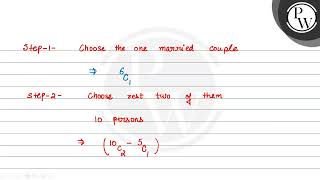 PW
Step-1- Choose the one married couple
⇒ ⁶C₁
Step-2- Choose rest two of them
10 persons
⇒ (¹⁰C₂ - ⁵C₁)